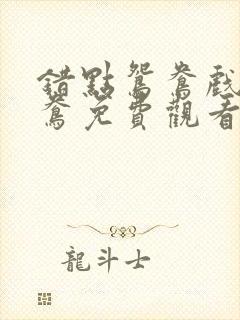 錯點鴛鴦戲
鴦免費觀看
龍斗士